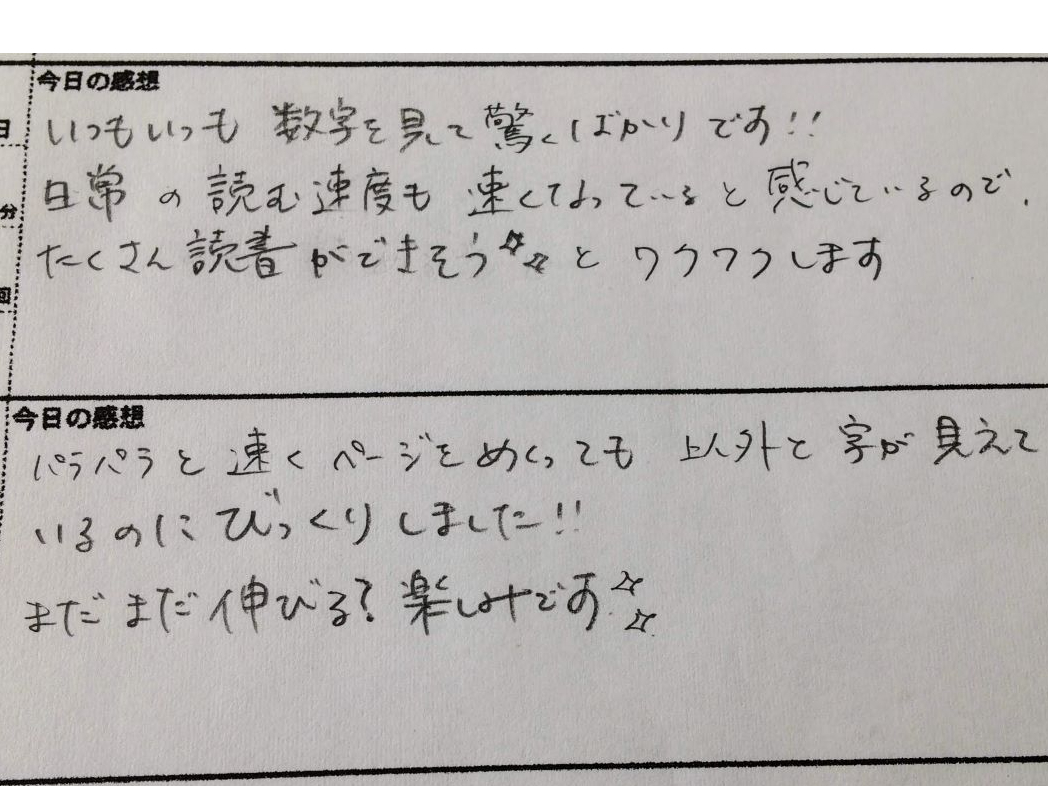 今日の感想
日
いつもいつも 数字を見て驚くばかりです!!
日常の読む速度も 速くなっていると感じているので、
分
たくさん読書ができそう☆☆とワクワクします
回
今日の感想
パラパラと速くページをめくっても 以外と字が見えて
いるのにびっくりしました!!
まだまだ伸びる?楽しみです☆☆